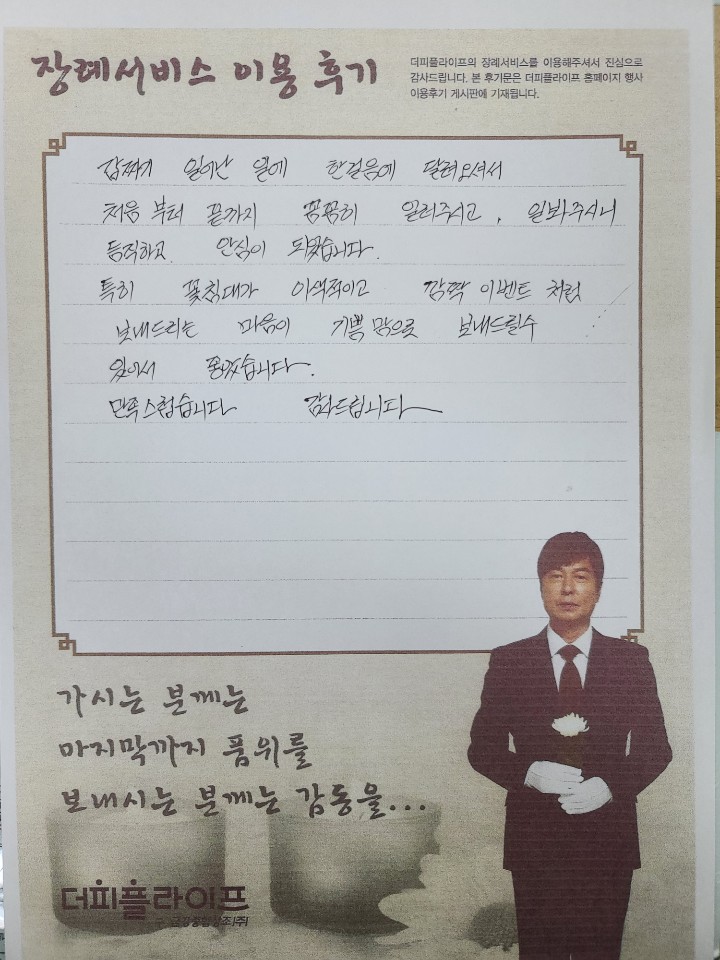 장례서비스 이용 후기
더피플라이프의 장례서비스를 이용해주셔서 진심으로
감사드립니다. 본 후기문은 더피플라이프 홈페이지 행사
이용후기 게시판에 기재됩니다.
갑짜기 일어난 일에 한걸음에 달려오셔서
처음 부터 끝까지 꼼꼼히 알려주시고, 일봐주시니
듬직하고 안심이 되었습니다.
특히 꽃침대가 이색적이고 깜짝 이벤트 처럼
보내드리는 마음이 기쁨 맘으로 보내드릴수
있어서 좋았습니다.
만족스럽습니다 감사드립니다
가시는 분께는
마지막까지 품위를
보내시는 분께는 감동을...
더피플라이프
금강종합상조(주)